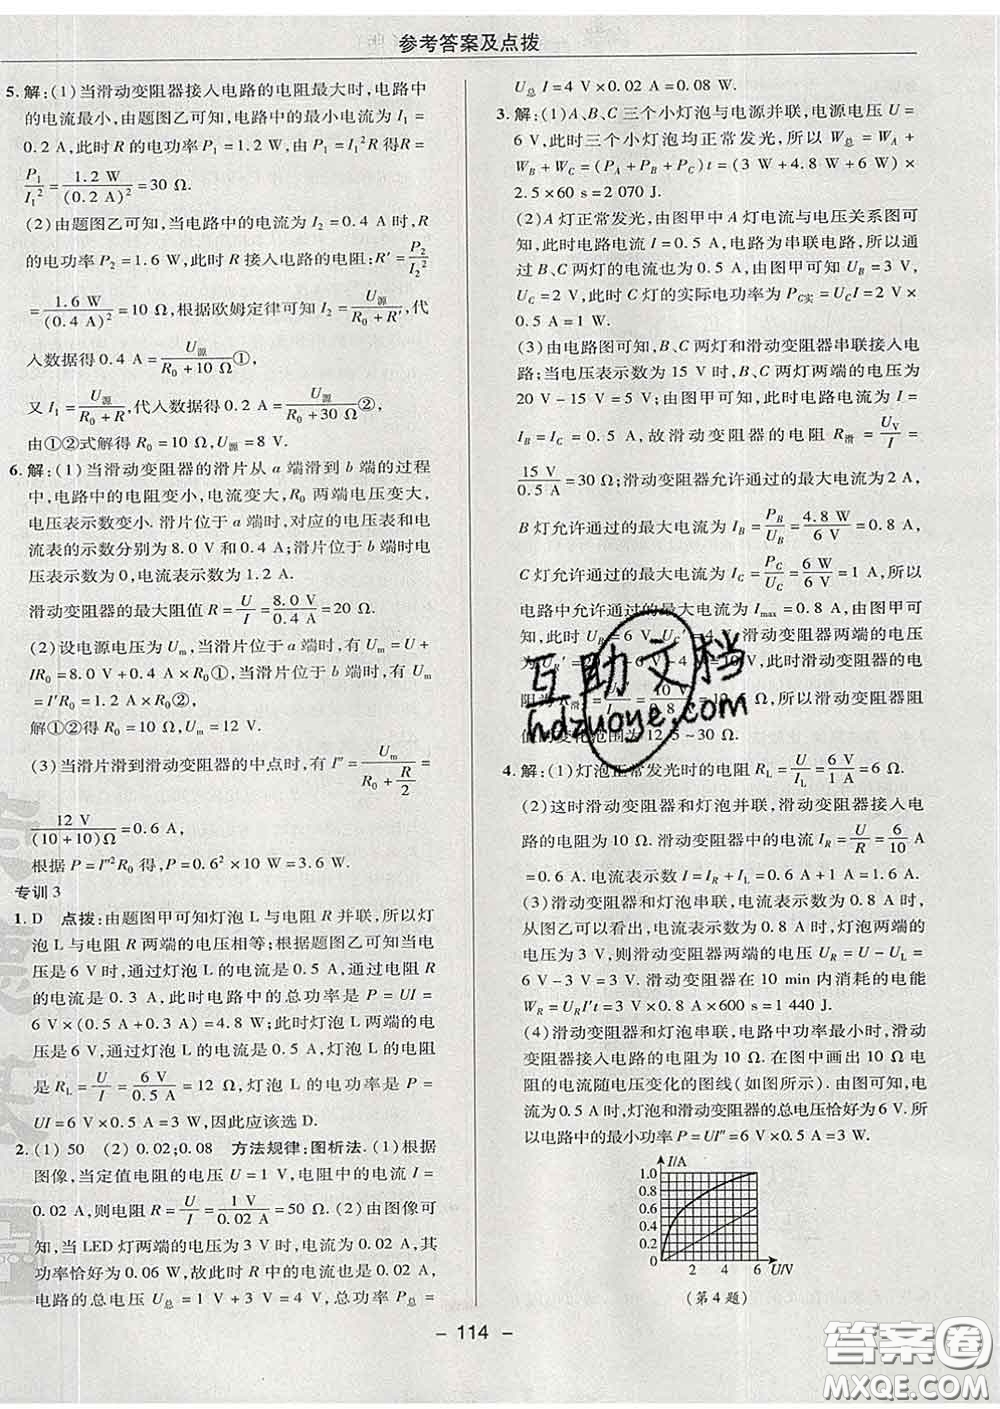 参考答案及点拨
5. 解:(1)当滑动变阻器接入电路的电阻最大时,电路中
的电流最小,由题图乙可知,电路中的最小电流为 I₁ =
0.2 A,此时 R 的电功率 P₁ = 1.2 W,由 P₁ = I₁²R 得 R =
P₁/I₁² = 1.2 W/(0.2 A)² = 30 Ω.
(2)由题图乙可知,当电路中的电流为 I₂ = 0.4 A 时,R
的电功率 P₂ = 1.6 W,此时 R 接入电路的电阻:R′ = P₂/I₂²
= 1.6 W/(0.4 A)² = 10 Ω,根据欧姆定律可知 I₂ = U源/(R₀ + R′),代
入数据得 0.4 A = U源/(R₀ + 10 Ω)①,
又 I₁ = U源/(R₀ + R),代入数据得 0.2 A = U源/(R₀ + 30 Ω)②,
由①②式解得 R₀ = 10 Ω,U源 = 8 V.
6. 解:(1)当滑动变阻器的滑片从 a 端滑到 b 端的过程
中,电路中的电阻变小,电流变大,R₀ 两端电压变大,
电压表示数变小. 滑片位于 a 端时,对应的电压表和电
流表的示数分别为 8.0 V 和 0.4 A;滑片位于 b 端时电
压表示数为 0,电流表示数为 1.2 A.
滑动变阻器的最大阻值 R = U/I = 8.0 V/0.4 A = 20 Ω.
(2)设电源电压为 Um,当滑片位于 a 端时,有 Um = U +
IR₀ = 8.0 V + 0.4 A × R₀①,当滑片位于 b 端时,有 Um
= I′R₀ = 1.2 A × R₀②,
解①②得 R₀ = 10 Ω,Um = 12 V.
(3)当滑片滑到滑动变阻器的中点时,有 I″ = Um/(R₀ + R/2) =
12 V/(10 + 10)Ω = 0.6 A,
根据 P = I″²R₀ 得,P = 0.6² × 10 W = 3.6 W.
专训 3
1. D 点拨:由题图甲可知灯泡 L 与电阻 R 并联,所以灯
泡 L 与电阻 R 两端的电压相等;根据题图乙可知当电
压是 6 V 时,通过灯泡 L 的电流是 0.5 A,通过电阻 R
的电流是 0.3 A,此时电路中的总功率是 P = UI =
6 V × (0.5 A + 0.3 A) = 4.8 W;此时灯泡 L 两端的电
压是 6 V,通过灯泡 L 的电流是 0.5 A,灯泡 L 的电阻
是 RL = U/I = 6 V/0.5 A = 12 Ω,灯泡 L 的电功率是 P =
UI = 6 V × 0.5 A = 3 W,因此应该选 D.
2. (1)50 (2)0.02;0.08 方法规律:图析法.(1)根据
图像,当定值电阻的电压 U = 1 V,电阻中的电流 I =
0.02 A,则电阻 R = U/I = 1 V/0.02 A = 50 Ω. (2)由图像可
知,当 LED 灯两端的电压为 3 V 时,电流为 0.02 A,其
功率恰好为 0.06 W,故此时 R 中的电流也是 0.02 A,
电路的总电压 U总 = 1 V + 3 V = 4 V,总功率 P总 =
U总 I = 4 V × 0.02 A = 0.08 W.
3. 解:(1)A、B、C 三个小灯泡与电源并联,电源电压 U =
6 V,此时三个小灯泡均正常发光,所以 W总 = WA +
WB + WC = (PA + PB + PC)t = (3 W + 4.8 W + 6 W) ×
2.5 × 60 s = 2 070 J.
(2)A 灯正常发光,由图甲中 A 灯电流与电压关系图可
知,此时电路电流 I = 0.5 A,电路为串联电路,所以通
过 B、C 两灯的电流也为 0.5 A,由图甲可知 UB = 3 V,
UC = 2 V,此时 C 灯的实际电功率为 PC实 = UCI = 2 V ×
0.5 A = 1 W.
(3)由电路图可知,B、C 两灯和滑动变阻器串联接入电
路;当电压表示数为 15 V 时,B、C 两灯两端的电压为
20 V - 15 V = 5 V;由图甲可知,此时电路电流 I =
IB = IC = 0.5 A,故滑动变阻器的电阻 R滑 = UV/I =
15 V/0.5 A = 30 Ω;滑动变阻器允许通过的最大电流为 2 A,
B 灯允许通过的最大电流为 IB = PB/UB = 4.8 W/6 V = 0.8 A,
C 灯允许通过的最大电流为 IC = PC/UC = 6 W/6 V = 1 A,所以
电路中允许通过的最大电流为 Imax = 0.8 A,由图甲可
知,此时 UB′ = 6 V,UC′ = 4 V,滑动变阻器两端的电压
为 U滑′ = 20 V - 6 V - 4 V = 10 V,此时滑动变阻器的电
阻为 R滑′ = 10 V/0.8 A = 12.5 Ω,所以滑动变阻器阻
值的变化范围为 12.5 ~ 30 Ω.
4. 解:(1)灯泡正常发光时的电阻 RL = U/IL = 6 V/1 A = 6 Ω.
(2)这时滑动变阻器和灯泡并联,滑动变阻器接入电
路的电阻为 10 Ω. 滑动变阻器中的电流 IR = U/R = 6/10 A
= 0.6 A. 电流表示数 I = IR + IL = 0.6 A + 1 A = 1.6 A.
(3)滑动变阻器和灯泡串联,电流表示数为 0.8 A 时,
从图乙可以看出,电路中的电流为 0.8 A,灯泡两端的
电压为 3 V,则滑动变阻器两端的电压 UR = U - UL =
6 V - 3 V = 3 V. 滑动变阻器在 10 min 内消耗的电能
WR = URI′t = 3 V × 0.8 A × 600 s = 1 440 J.
(4)滑动变阻器和灯泡串联,电路中功率最小时,滑动
变阻器接入电路的电阻为 10 Ω. 在图中画出 10 Ω 电
阻的电流随电压变化的图线(如图所示). 由图可知,当
电流为 0.5 A 时,灯泡和滑动变阻器的总电压恰好为 6 V. 所
以电路中的最小功率 P = UI″ = 6 V × 0.5 A = 3 W.
I/A
1.0
0.8
0.6
0.4
0.2
0
2 4 6 U/V
(第 4 题)
- 114 -
互助文档
hdzuoye.com
答案圈
MXQE.COM